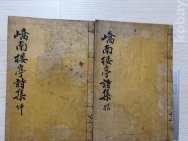 嶠南樓亭詩集 仲
嶠南樓亭詩集
ebay